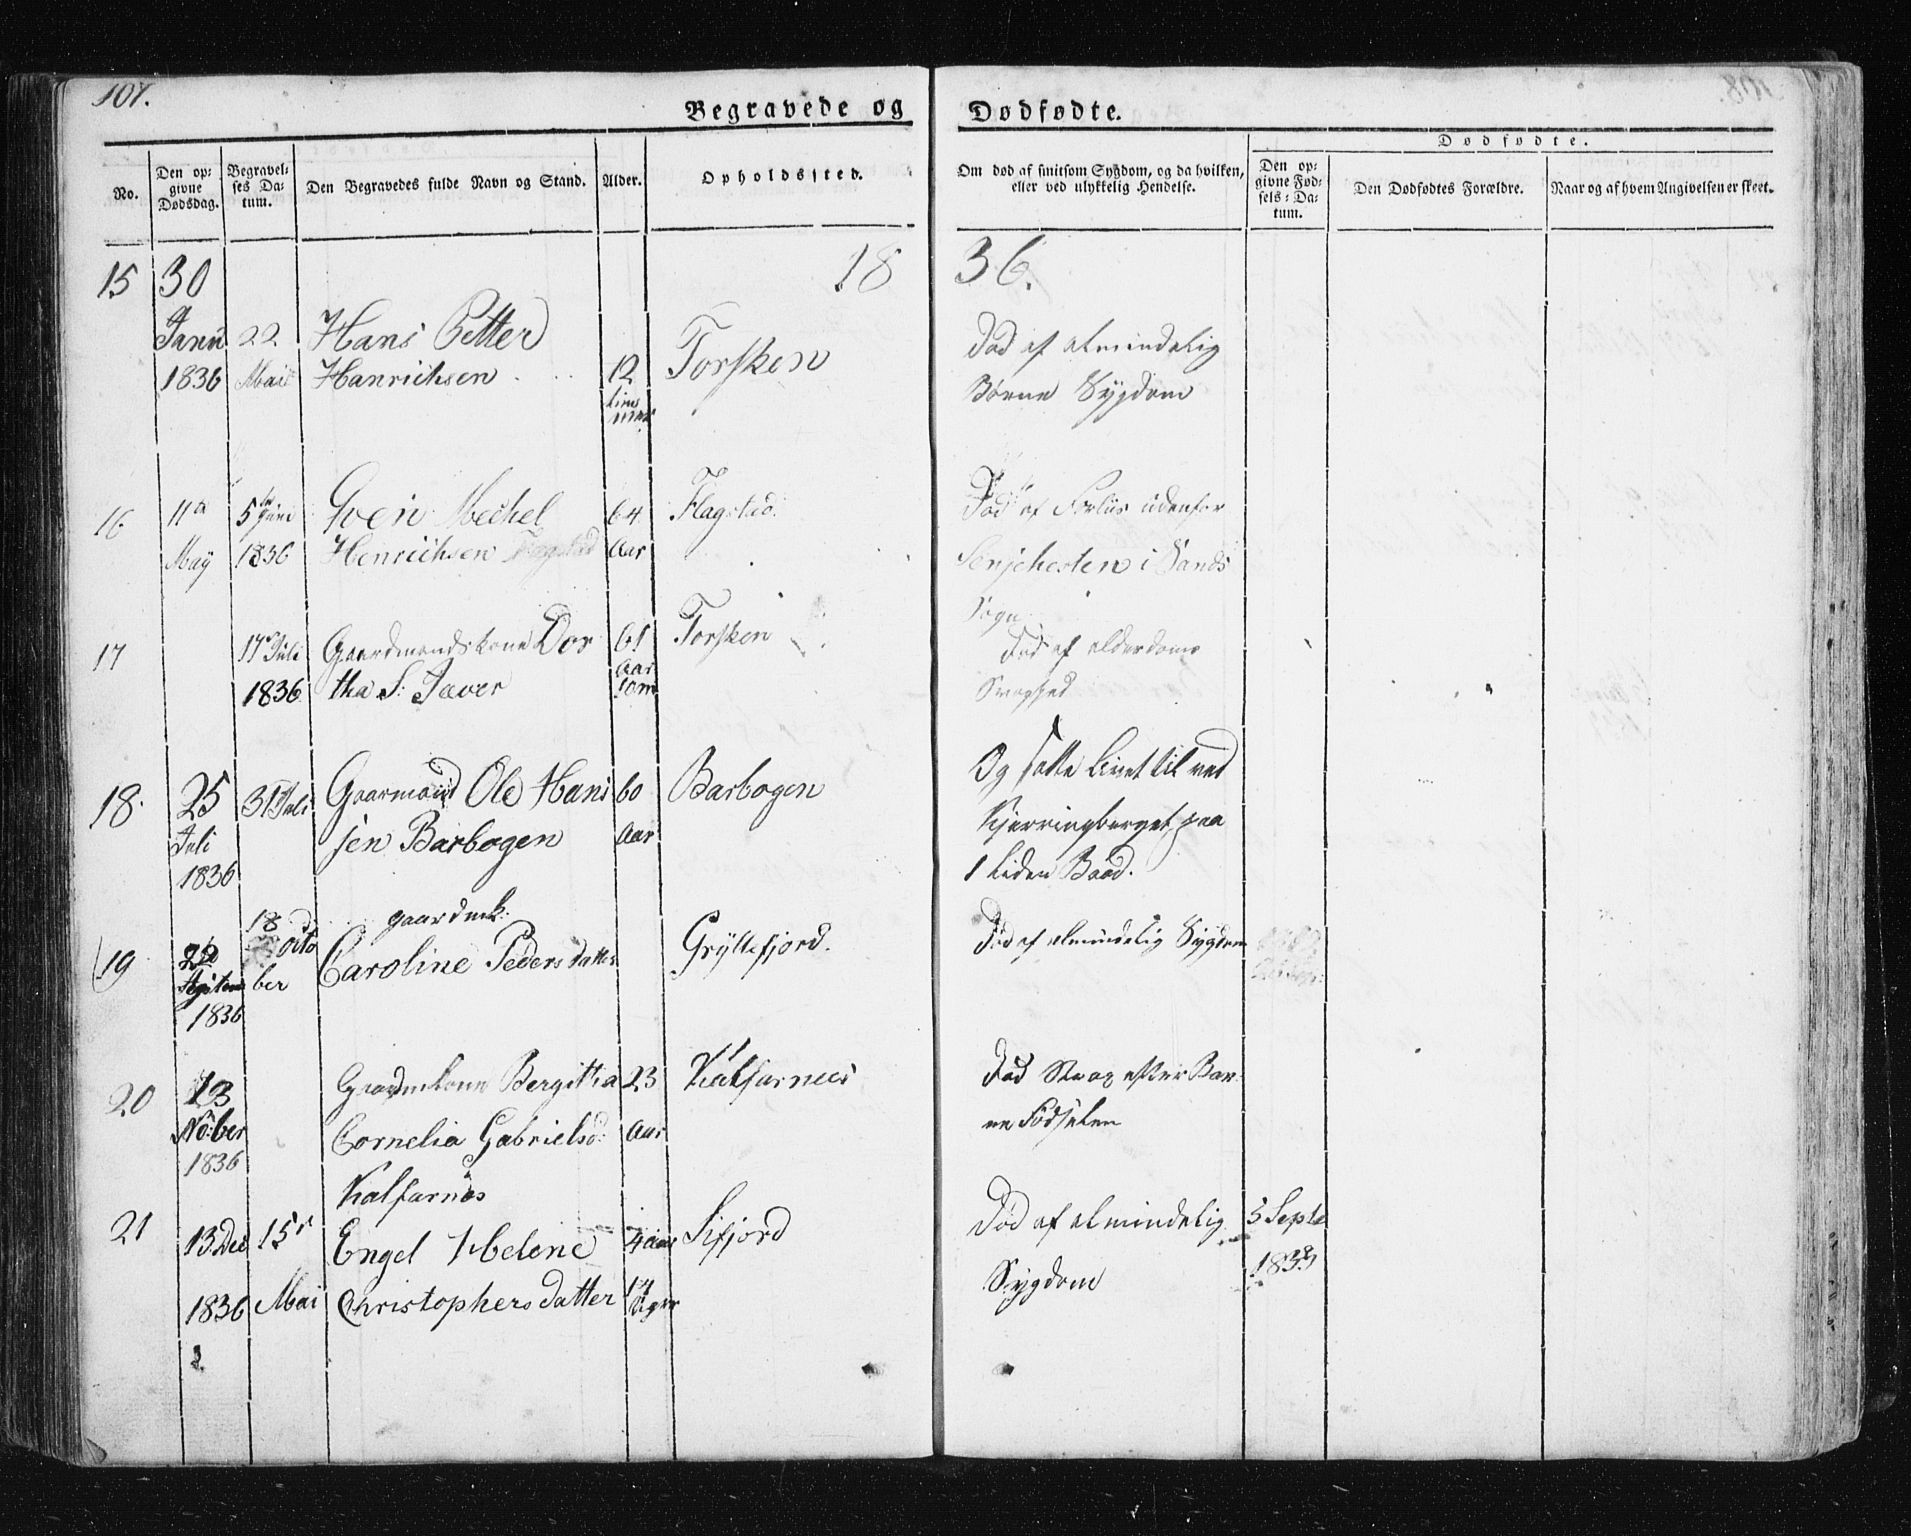 107.
108.
Begravede og Dødfødte.
No.
Den opgivne Dødsdag.
Begravelses Datum.
Den Begravedes fulde Navn og Stand.
Alder.
Opholdssted.
Om død af smitsom Sygdom, og da hvilken, eller ved ulykkelig Hendelse.
Dødfødte.
Den opgivne Fødsels-Datum.
Den Dødfødtes Forældre.
Naar og af hvem Angivelsen er skeet.
1836.
15 30 Hans Petter Død af almindelig
Janu 22
1836 Mai Hanrichsen 12 Torsken Børne Sygdom
16 11te 5te Juni Sven Mechel 64 Flagstad. Død af Forliis udenfor
May 1836 Henrichsen Aar Senjehesten i Sands
Sogn
17 17 Juli Gaardmandskone Dor 61 Torsken Død af alderdoms
1836 tha S: Jæver Aar 10 m Svaghed
18. 25 31 Juli Gaarmand Ole Hans 60 Barbogen Og satte Livet til ved
Juli sen Barbogen Aar Kjerringberget paa
1836 1 liden Baad.
18 gaardmk:
19 22 Octo Caroline Pedersdatter Gryllefjord. Død af almindelig Sygdom
Septem ber
1836
20 13 Gaardmkone Bergitha 23 Kalfarnes Død Strax efter Bar
No:ber Cornelia Gabrielsd: Aar ne Fødselen
1836 Kalfarnes
21 13 Dec 15 Engel Helene 4 aar Sifjord Død af almindelig 5 Septe
1836 Mai Christophersdatter 14 Uger Sygdom